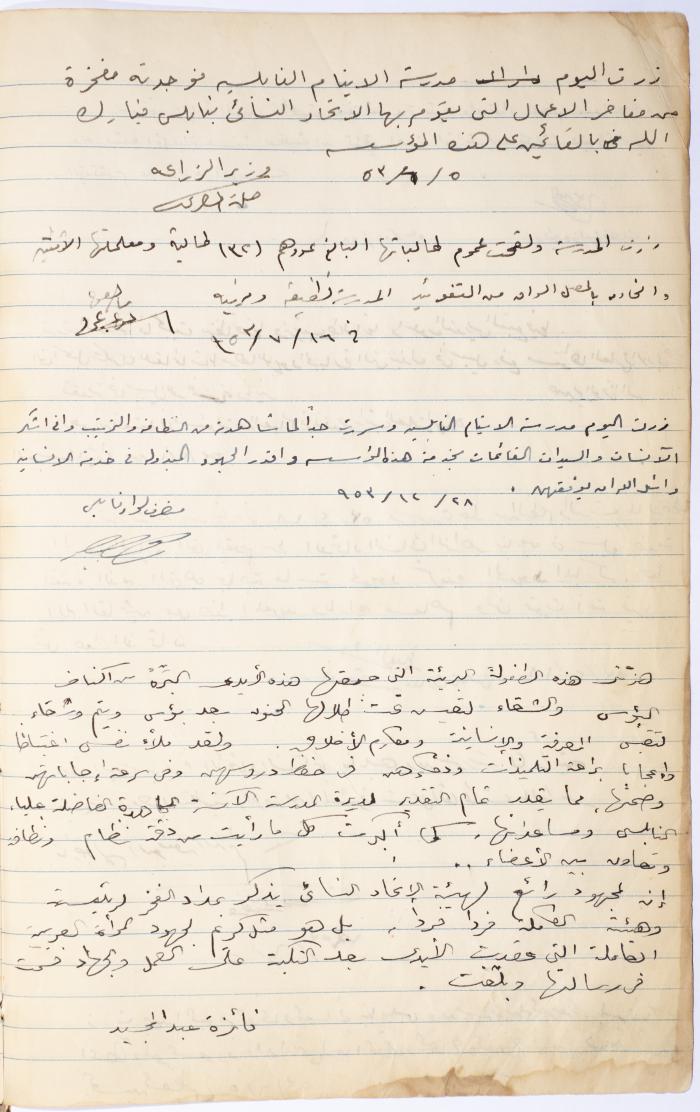 زرت اليوم مدرسة الايتام النابلسيه فوجدته مفخرة
من مفاخر الاعمال التي يقوم بها الاتحاد النسائي بنابلس فبارك
الله بالقائمين على هذه المؤسسه
٥ / ٥٣
وزير الزراعه
زرت المدرسة ولقحت عموم طالباتها البالغ عددهم (١٣٢) طالبة ومعلماتها
ضد التفوئيد المدرسة نظيفة ومرتبه
في ١٦ / ٧ / ٩٥٣
زرت اليوم مدرسة الايتام النابلسيه وسررت جداً لما شاهدته من النظافه والترتيب واني اشكر
الآنسات والسيدات القائمات بخدمة هذه المؤسسه واقدر الجهود المبذوله في خدمة الانسانيه
واسأل الله ان يوفقهن .
٢٨ / ١٢ / ٩٥٣
متصرف لواء نابلس
هزتني هذه الطفولة البريئة التي جمعتها هذه الأيدي البَرَّة من اكناف
البؤس والشقاء لتعيش تحت ظلالها الحنون بعد بؤس ويتم وشقاء
المعرفة والإنسانية ومكارم الأخلاق . ولقد ملأ نفسي اغتباطا
واعجابا براعة التلميذات وذكاؤهن في حفظ دروسهن وفي سرعة إجاباتهن
وصحتها، مما يقدر تمام التقدير لمديرة المدرسة الآنسة المجاهدة الفاضلة علياء
النابلسي ومساعداتها. كما أكبرت كل ما رأيت من دقة نظام ونظافه
وتعاون بين الأعضاء ..
إن لمجهود رائع لهيئة الإتحاد النسائي يذكر بمداد الفخر لرئيسته
وهيئته العاملة فردا فردا، بل هو مثل كريم لجهود المرأة العربية
العاملة التي عقدت الأيدي بعد النكبة على العمل والجهاد
في رسالتها وبلّغت .
فائزة عبد المجيد